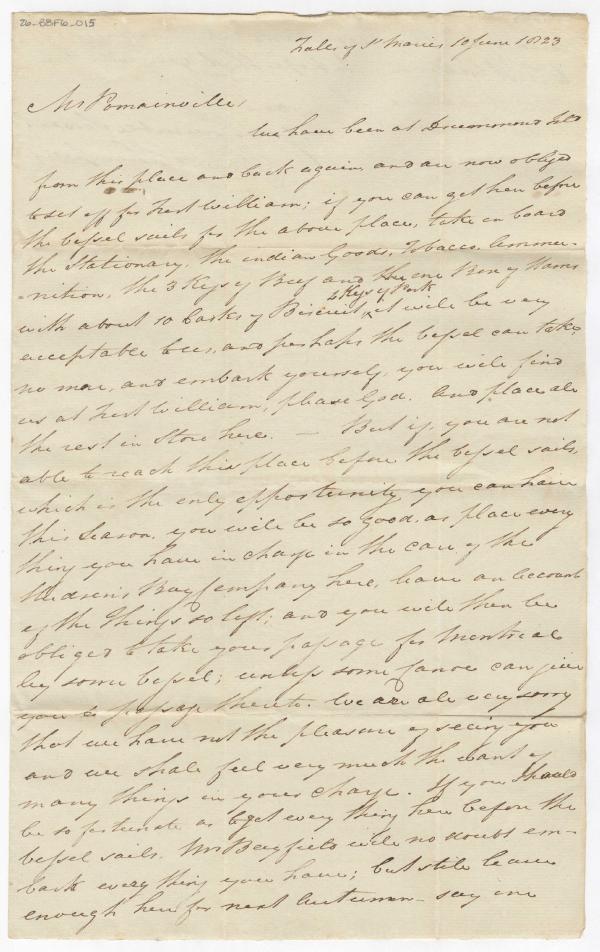 26-BBF6-015
Falls of St Maries 10 June 1823
Mr Pomainville,
We have been at Drummond Isld
from this place and back again, and are now obliged
to set off for Fort William; if you can get here before
the vessel sails for the above place, take on board
the Stationary, the indian Goods, Tobacco, Ammu-
-nition, the 3 Kegs of Beef and the one Box of Hams
4 Kegs of Pork
with about 10 Casks of Biscuit, it will be very
acceptable to us, and perhaps the vessel can take
no more, and embark yourself, you will find
us at Fort William, please God. And place all
the rest in Store here. — But if you are not
able to reach this place before the vessel sails,
which is the only opportunity you can have
this Season, you will be so good, as place every
thing you have in charge in the care of the
Hudson's Bay Company here, leave an account
of the things so left; and you will then be
obliged to take your passage for Montreal
by some vessel; unless some Canoe can give
you a passage thereto. We are all very sorry
that we have not the pleasure of seeing you
and we shall feel very much the want of
many things in your charge. If you should
be so fortunate as to get every thing here before the
vessel sails. Mr Bayfield will no doubt em-
bark every thing you have; but still leave
enough here for next Autumn — say one